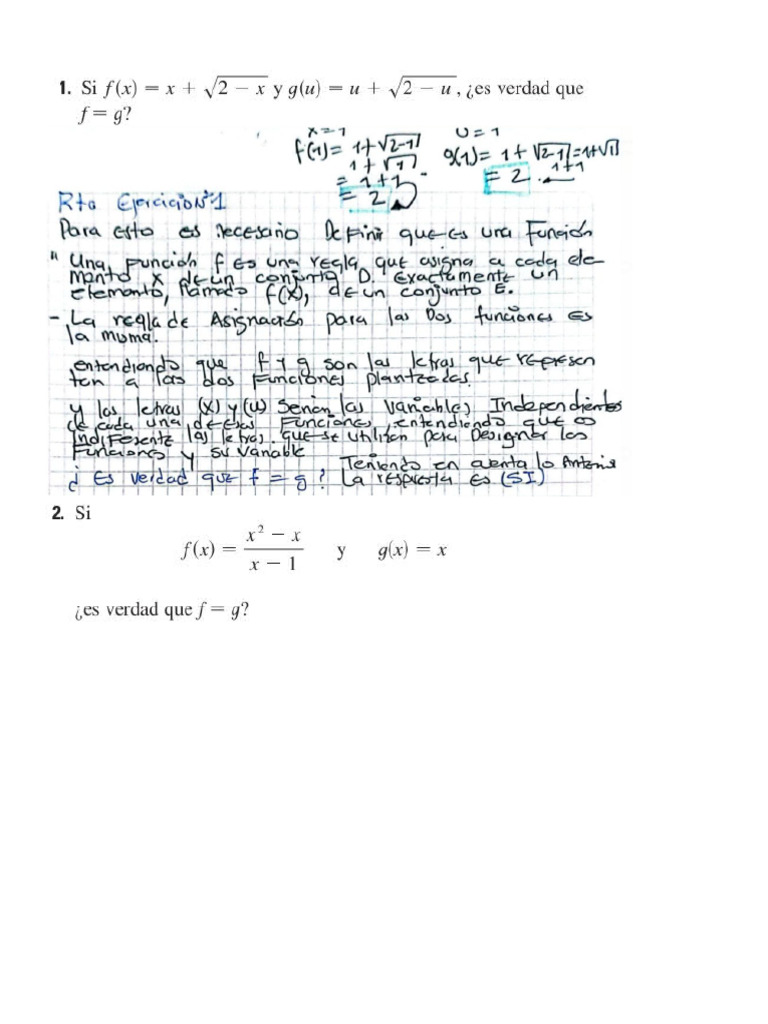 1. Si f(x) = x + √2 − x y g(u) = u + √2 − u, ¿es verdad que
f = g?
x=1
f(1)= 1+√2-1
1+√1
= 1+1
= 2
U=1
g(1)= 1+√2-1=1+√1
1+1
= 2
Rta Ejercicio N°1
Para esto es necesario Definir que es una Función
" Una función f es una regla que asigna a cada ele-
mento x de un conjunto D. Exactamente un
elemento, llamado f(x), de un conjunto E.
- La regla de Asignación para las Dos funciones Es
la misma.
entendiendo que f y g son las letras que represen
ten a las dos funciones planteadas.
y las letras (x) y (u) Serían las variables Independientes
de cada una de esas Funciones, entendiendo que es
Indiferente las letras que se utilicen para Designar las
Funciones y su variable
Teniendo en cuenta lo Anterior
¿ Es verdad que f = g? La respuesta Es (SI)
2. Si
f(x) = x² − x / x − 1 y g(x) = x
¿es verdad que f = g?